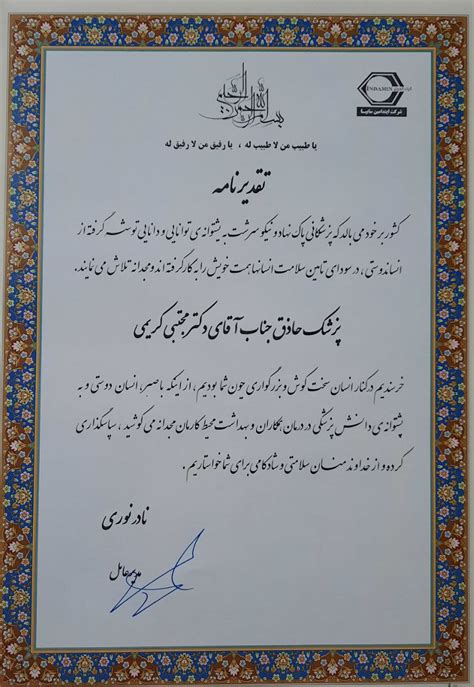 بسم الله الرحمن الرحیم
INDAMIN
شرکت ایندامین سایپا
یا طبیب من لا طبیب له ، یا رفیق من لا رفیق له
تقدیرنامه
کشور بر خود می بالد که پزشکانی پاک نهاد و نیکو سرشت به پشتوانه ی توانایی و دانایی توشه گرفته از
انساندوستی ، در سودای تامین سلامت انسانها همت خویش را به کار گرفته اند و مجدانه تلاش می نمایند.
پزشک حاذق جناب آقای دکتر مجتبی کریمی
خرسندیم در کنار انسان سخت کوش و بزرگواری چون شما بودیم ، از اینکه با صبر، انسان دوستی و به
پشتوانه ی دانش پزشکی در درمان همکاران و بهداشت محیط کارمان مجدانه می کوشید ، سپاسگذاری
کرده و از خداوند منان سلامتی و شادکامی برای شما خواستاریم .
نادر نوری
مدیرعامل